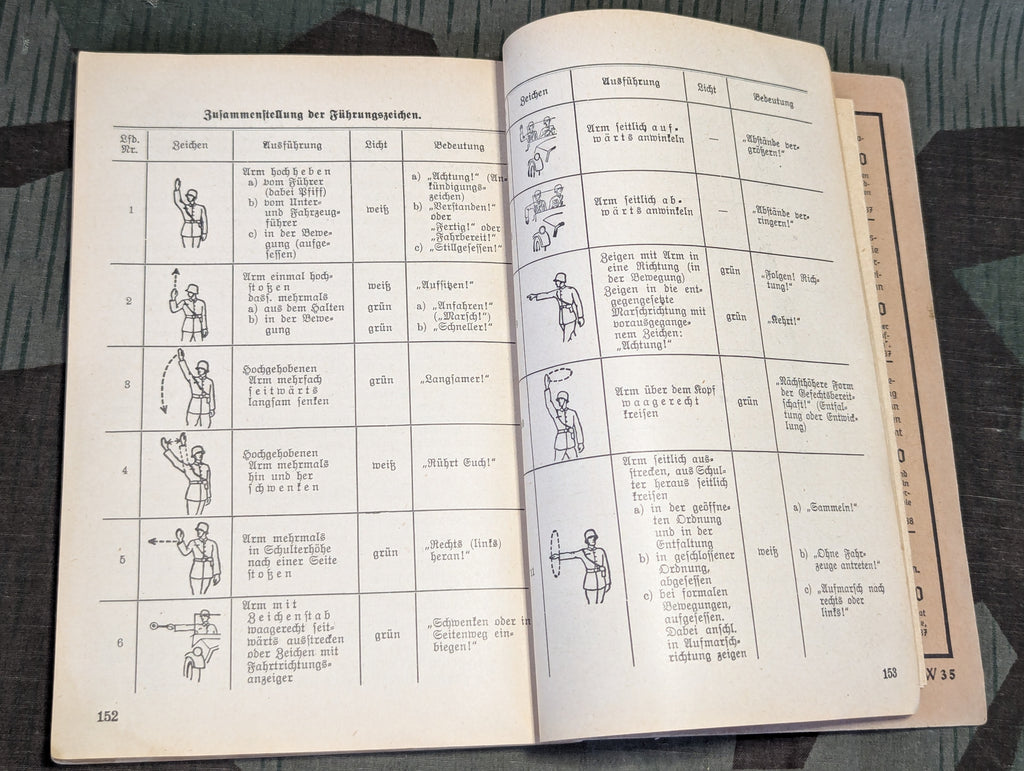 Zusammenstellung der Führungszeichen.
Lfd. Nr.
Zeichen
Ausführung
Licht
Bedeutung
1
Arm hochheben
a) vom Führer
(dabei Pfiff)
b) vom Unter-
und Fahrzeug-
führer
c) in der Bewe-
gung (aufge-
sessen)
weiß
a) „Achtung!“ (An-
kündigungs-
zeichen)
b) „Verstanden!“
oder
„Fertig!“ oder
„Fahrbereit!“
c) „Stillgesessen!“
2
Arm einmal hoch-
stoßen
dass. mehrmals
a) aus dem Halten
b) in der Bewe-
gung
weiß
grün
grün
„Aufsitzen!“
a) „Anfahren!“
(„Marsch!“)
b) „Schneller!“
3
Hochgehobenen
Arm mehrfach
seitwärts
langsam senken
grün
„Langsamer!“
4
Hochgehobenen
Arm mehrmals
hin und her
schwenken
weiß
„Rührt Euch!“
5
Arm mehrmals
in Schulterhöhe
nach einer Seite
stoßen
grün
„Rechts (links)
heran!“
6
Arm mit
Zeichenstab
waagerecht seit-
wärts ausstrecken
oder Zeichen mit
Fahrtrichtungs-
anzeiger
grün
„Schwenken oder in
Seitenweg ein-
biegen!“
152
Zeichen
Ausführung
Licht
Bedeutung
Arm seitlich auf-
wärts anwinkeln
—
„Abstände ver-
größern!“
Arm seitlich ab-
wärts anwinkeln
—
„Abstände ver-
ringern!“
Zeigen mit Arm in
eine Richtung (in
der Bewegung)
Zeigen in die ent-
gegengesetzte
Marschrichtung mit
vorausgegange-
nem Zeichen:
„Achtung!“
grün
grün
„Folgen! Rich-
tung!“
„Kehrt!“
Arm über dem Kopf
waagerecht
kreisen
grün
„Nächsthöhere Form
der Gefechtsbereit-
schaft!“ (Entfal-
tung oder Entwick-
lung)
Arm seitlich aus-
strecken, aus Schul-
ter heraus seitlich
kreisen
a) in der geöffne-
ten Ordnung
und in der
Entfaltung
b) in geschlossener
Ordnung,
abgesessen
c) bei formalen
Bewegungen,
aufgesessen.
Dabei anschl.
in Aufmarsch-
richtung zeigen
weiß
a) „Sammeln!“
b) „Ohne Fahr-
zeuge antreten!“
c) „Aufmarsch nach
rechts oder
links!“
153
W 35